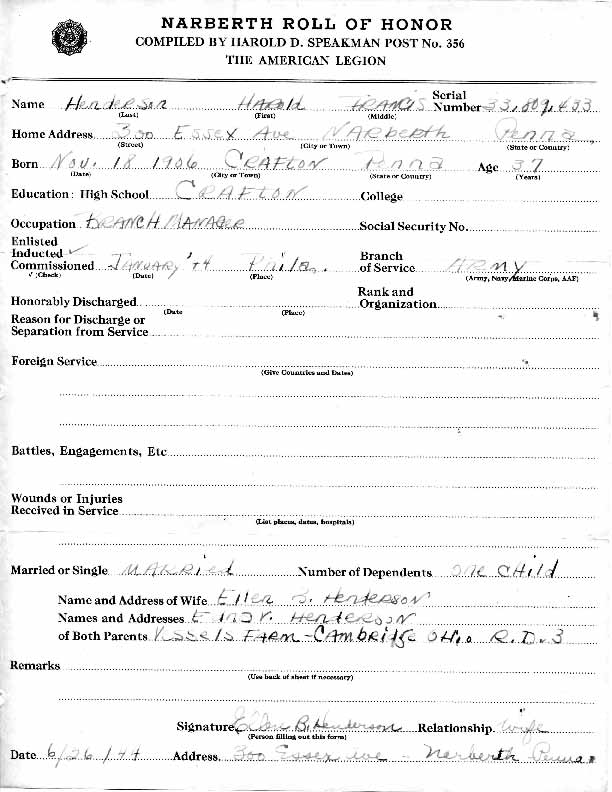 NARBERTH ROLL OF HONOR
COMPILED BY HAROLD D. SPEAKMAN POST No. 356
THE AMERICAN LEGION
Name Henderson Harold Francis Serial Number 33,809,433
(Last) (First) (Middle)
Home Address 300 Essex Ave Narberth Penna.
(Street) (City or Town) (State or Country)
Born Nov. 18 1906 Crafton Penna Age 37
(Date) (City or Town) (State or Country) (Years)
Education: High School Crafton College
Occupation Branch Manager Social Security No.
Enlisted
Inducted ✓ Branch
Commissioned January '44 Phila. of Service Army
✓ (Check) (Date) (Place) (Army, Navy, Marine Corps, AAF)
Rank and
Honorably Discharged Organization
(Date (Place)
Reason for Discharge or
Separation from Service
Foreign Service
(Give Countries and Dates)
Battles, Engagements, Etc
Wounds or Injuries
Received in Service
(List places, dates, hospitals)
Married or Single Married Number of Dependents one child
Name and Address of Wife Ellen B. Henderson
Names and Addresses Henderson
of Both Parents Farm - Cambridge Ohio R.D. 3
Remarks
(Use back of sheet if necessary)
Signature Ellen B. Henderson Relationship wife
(Person filling out this form)
Date 6/26/44 Address 300 Essex Ave - Narberth Penna.